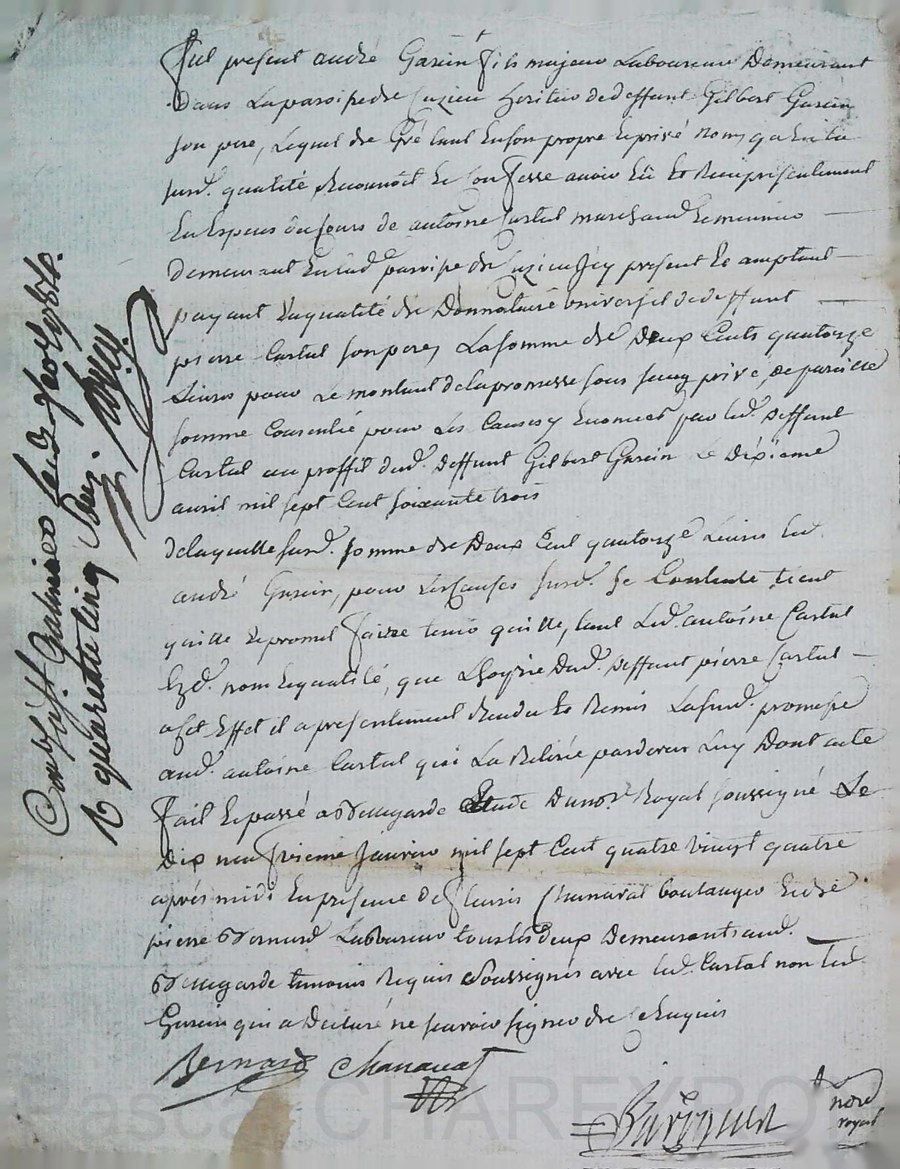 Fut présent andré Garein fils majeur Laboureur Demeurant
Dans La paroisse de Cuzieu héritier de deffunt Gilbert Garein
son pere, Lequel de Gré tant En son propre Et privé nom, qu'En la
surd. qualité Reconnoit Et Confesse avoir Eû Et Reçu présentement
En Espèces du Cours de antoine Cartal marchand Et meunier
demeurant En lad. paroisse de Cuzieu jcy present Et acceptant
payant En qualité de Donnataire Universel de deffunt
pierre Cartal son pere, La somme de Deux Cents quatorze
Livres pour Le montant de la promesse sous seing privé, de pareille
somme Consentie pour Les Causes y Enoncées par led. Deffunt
Cartal au proffit dud. deffunt Gilbert Garein Le Dixieme
avril mil sept Cent soixante trois
de laquelle surd. somme de Deux Cent quatorze Livres led.
andré Garein, pour Les Causes surd. se Contente tient
quitte Et promet faire tenir quitte, tant Led. antoine Cartal
Ezd. nom Et qualité, que L'hoyrie Dud. Deffunt pierre Cartal
a Cet Effet il a présentement Rendu Et Remis La surd. promesse
aud. antoine Cartal qui La Retirée pardevers Luy Dont acte
Fait Et passé a Bellegarde Etude Du nore Royal soussigné Le
Dix neufvieme Janvier mil sept Cent quatre vingt quatre
après midi En présence de Fleuris Chanavat boulanger Et de
pierre Bernard Laboureur tous les deux Demeurants aud.
Bellegarde temoins Requis Soussignés avec led. Cartal non led.
Garein qui a Declaré ne savoir signer de Ce Enquis
Bernard Chanavat
nore
royal
Pascal CHAREYRO